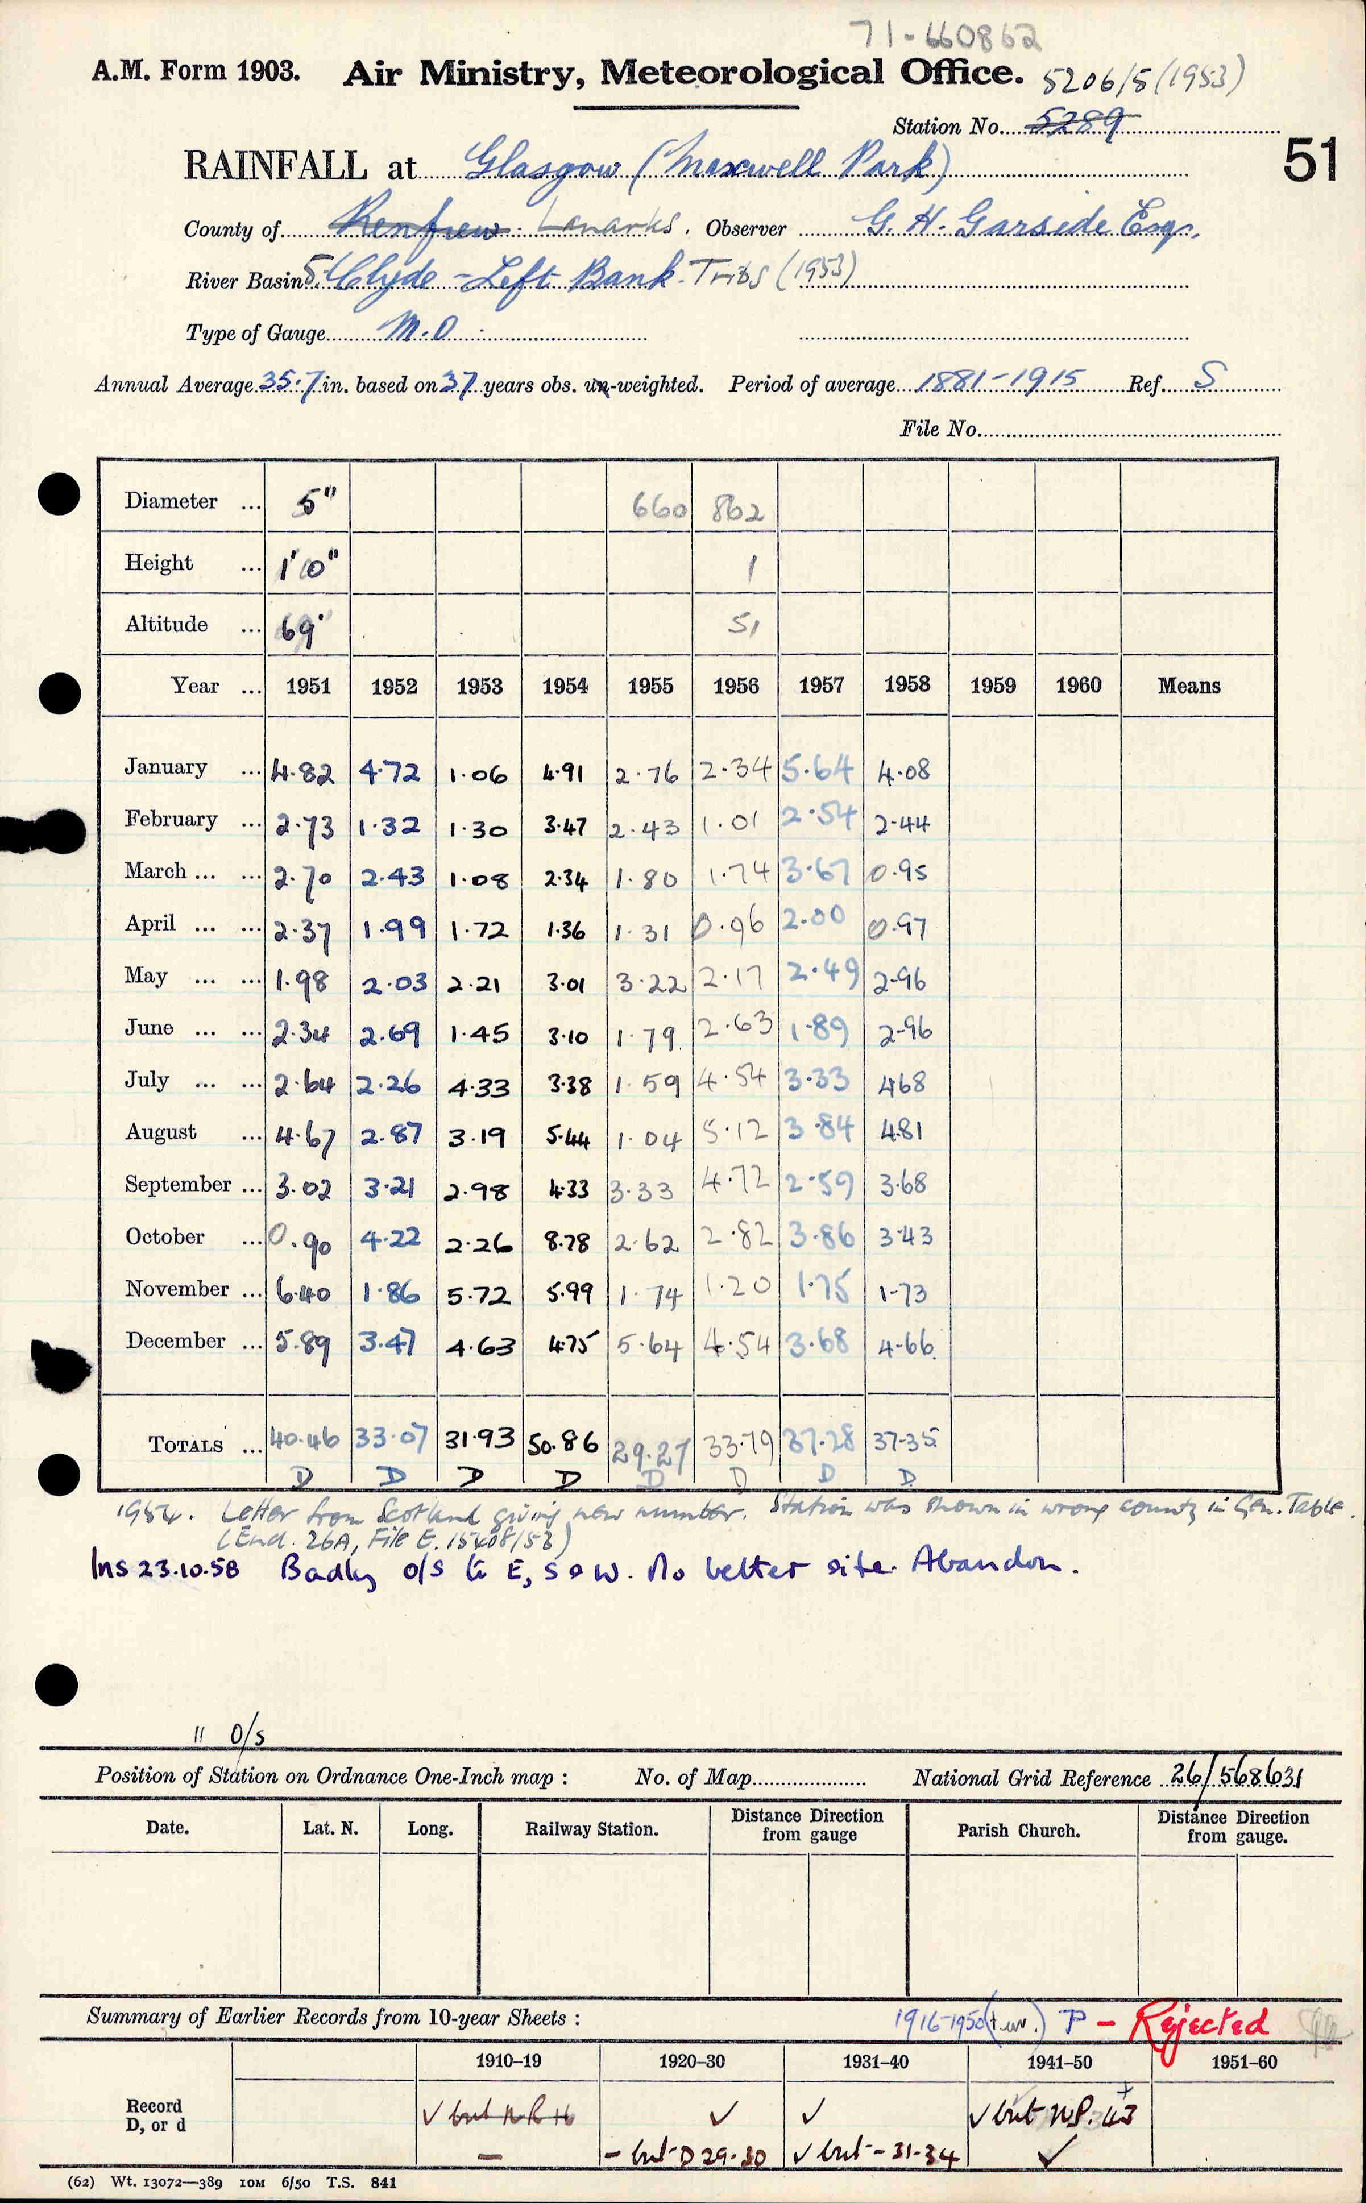 71-660862
A.M. Form 1903. Air Ministry, Meteorological Office. 5206/5 (1953)
Station No. 5289
51
RAINFALL at Glasgow (Maxwell Park)
County of Renfrew. Lanarks. Observer G. H. Garside Esq.
River Basin 5. Clyde - Left Bank. Tribs (1953)
Type of Gauge M.O
Annual Average 35.7 in. based on 37 years obs. un-weighted. Period of average 1881-1915 Ref. S
File No.
Diameter ... 5" 660 862
Height ... 1'0" 1
Altitude ... 69' 51
Year ... 1951 1952 1953 1954 1955 1956 1957 1958 1959 1960 Means
January ... 4.82 4.72 1.06 4.91 2.76 2.34 5.64 4.08
February ... 2.73 1.32 1.30 3.47 2.43 1.01 2.54 2.44
March ... ... 2.70 2.43 1.08 2.34 1.80 1.74 3.67 0.95
April ... ... 2.37 1.99 1.72 1.36 1.31 0.96 2.00 0.97
May ... ... 1.98 2.03 2.21 3.01 3.22 2.17 2.49 2.96
June ... ... 2.34 2.69 1.45 3.10 1.79 2.63 1.89 2.96
July ... ... 2.64 2.26 4.33 3.38 1.59 4.54 3.33 4.68
August ... 4.67 2.87 3.19 5.44 1.04 5.12 3.84 4.81
September ... 3.02 3.21 2.98 4.33 3.33 4.72 2.59 3.68
October ... 0.90 4.22 2.26 8.78 2.62 2.82 3.86 3.43
November ... 6.40 1.86 5.72 5.99 1.74 1.20 1.75 1.73
December ... 5.89 3.47 4.63 4.75 5.64 4.54 3.68 4.66
TOTALS ... 40.46 33.07 31.93 50.86 29.27 33.79 37.28 37.35
D D D D D D D D
1954. Letter from Scotland giving new number. Station was shown in wrong county in Gen. Table.
(Encl. 26A, File E. 15408/53)
Ins 23.10.58 Badly o/s to E, S & W. No better site. Abandon.
" O/S
Position of Station on Ordnance One-Inch map : No. of Map National Grid Reference 26/568631
Date. Lat. N. Long. Railway Station. Distance Direction from gauge Parish Church. Distance Direction from gauge.
Summary of Earlier Records from 10-year Sheets : 1916-1950 P - Rejected
1910–19 1920–30 1931–40 1941–50 1951–60
Record D, or d
✓ but ✓ ✓ ✓ but N.P. 43
- - but D 29-30 ✓ but - 31-34 ✓
(62) Wt. 13072—389 10M 6/50 T.S. 841